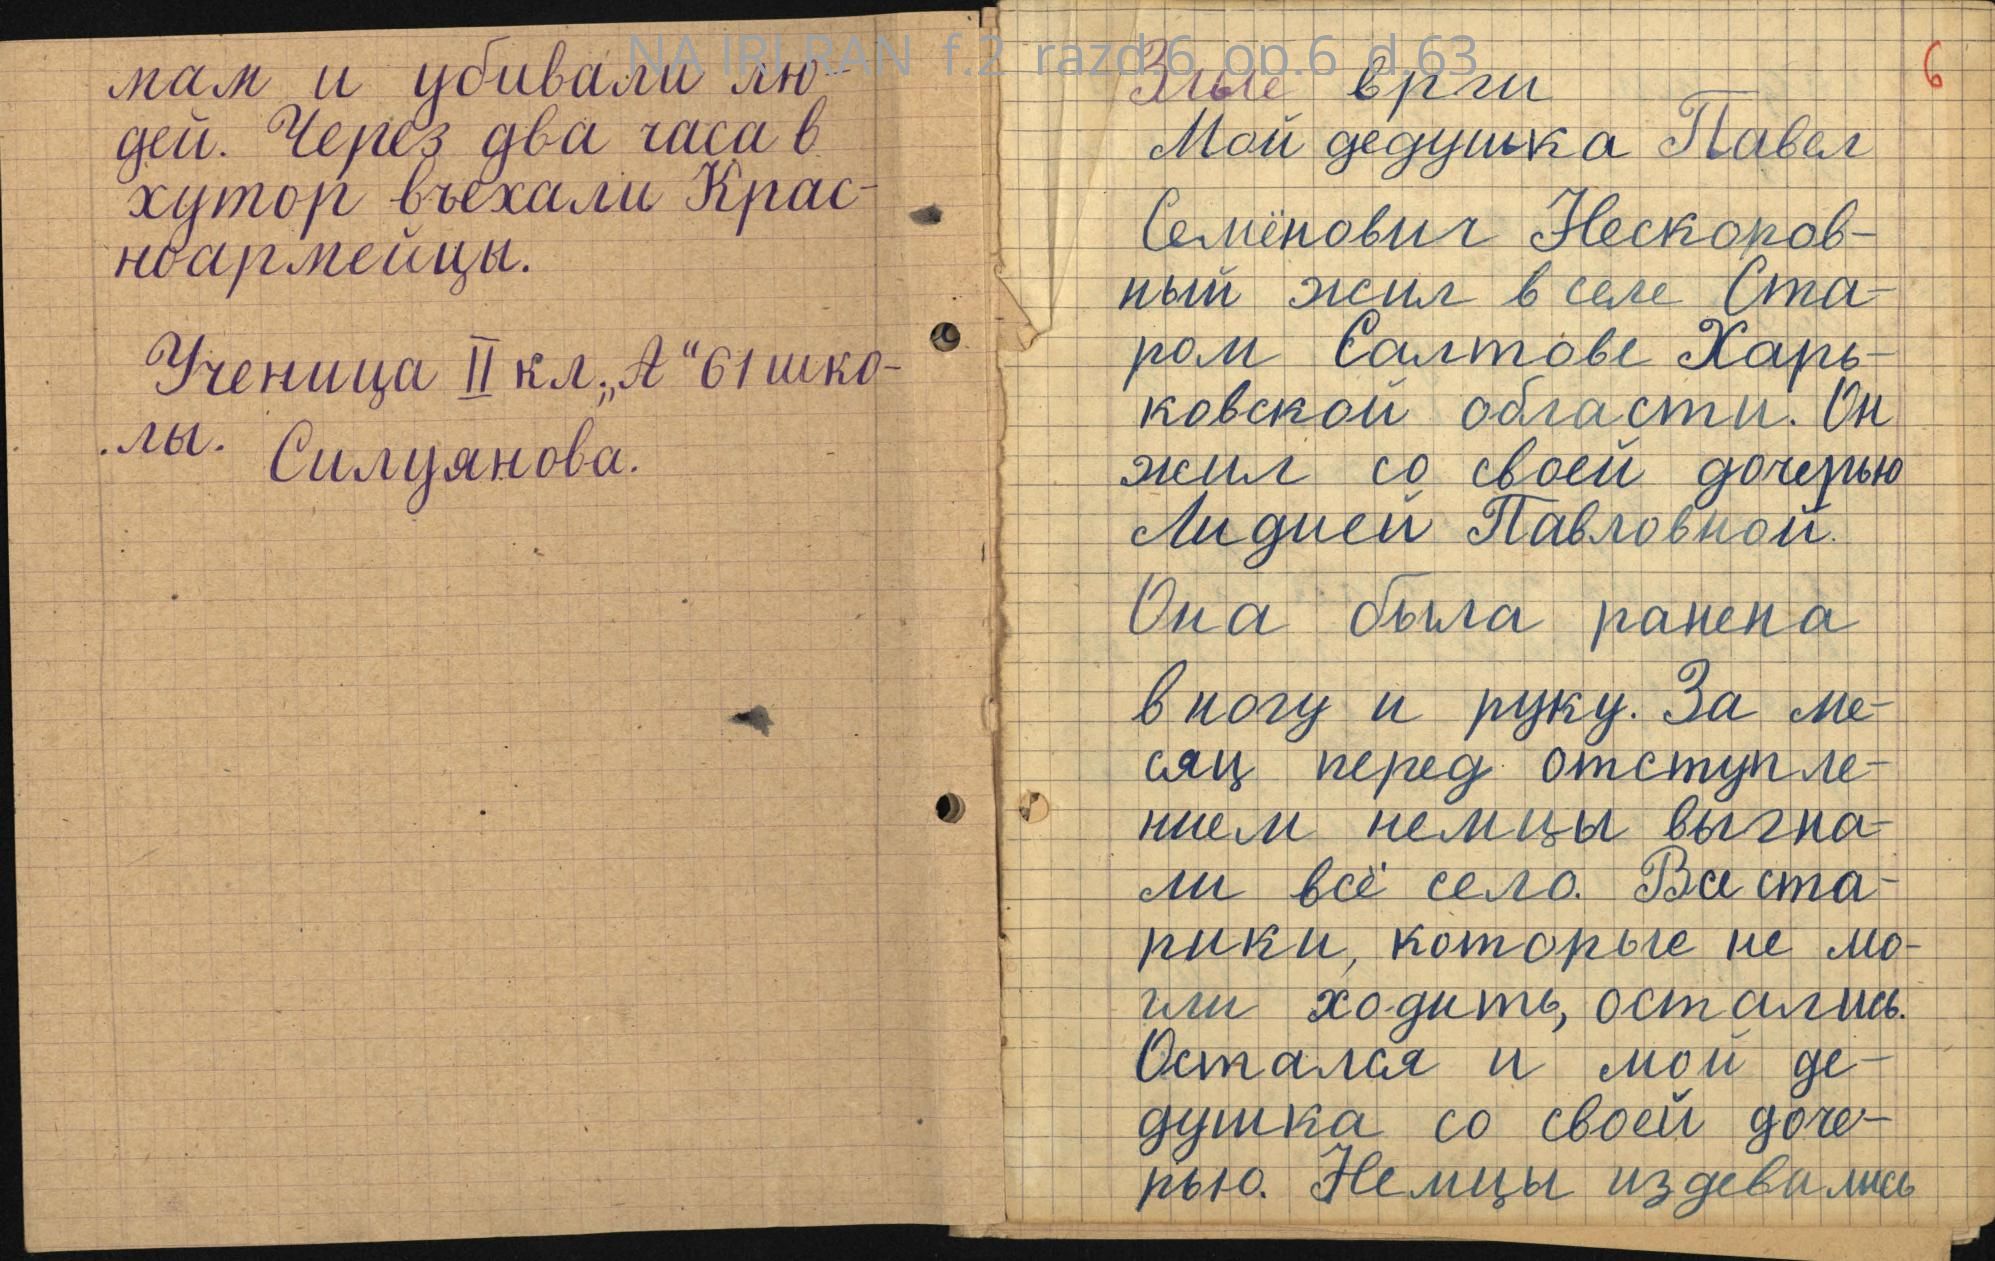 мам и убивали лю-
дей. Через два часа в
хутор въехали Крас-
ноармейцы.
Ученица II кл. „А“ 61 шко-
лы.
Силуянова.
NA IRI RAN f.2 razd.6 op.6 d.63
6
Злые врги
Мой дедушка Павел
Семёнович Нескоров-
ный жил в селе Ста-
ром Салтове Харь-
ковской области. Он
жил со своей дочерью
Лидией Павловной.
Она была ранена
в ногу и руку. За ме-
сяц перед отступле-
нием немцы выгна-
ли всё село. Все ста-
рики, которые не мо-
гли ходить, остались.
Остался и мой де-
душка со своей доче-
рью. Немцы издевались